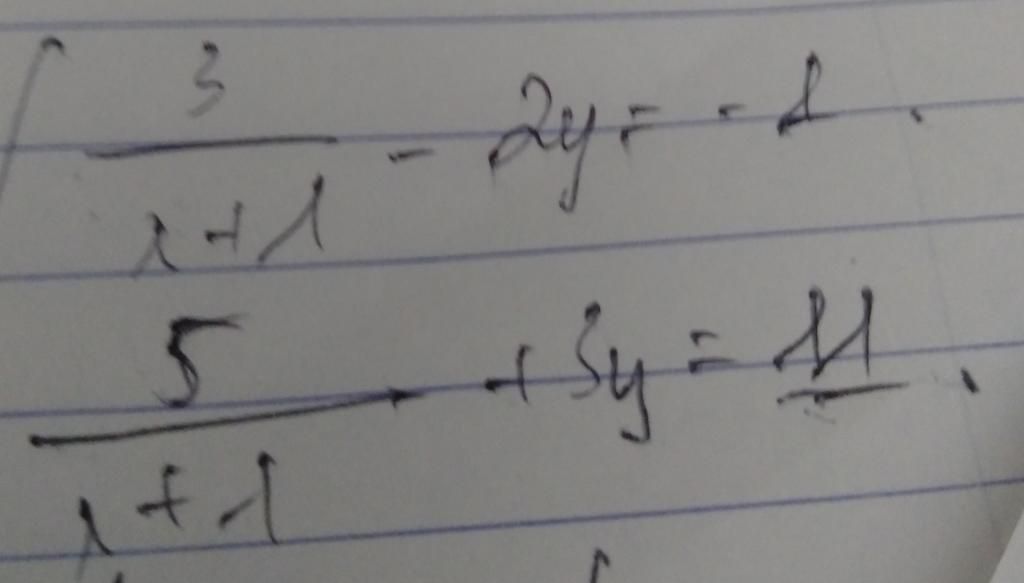 3/(x+1) - 2y = -1.
5/(x+1) + 3y = 11.